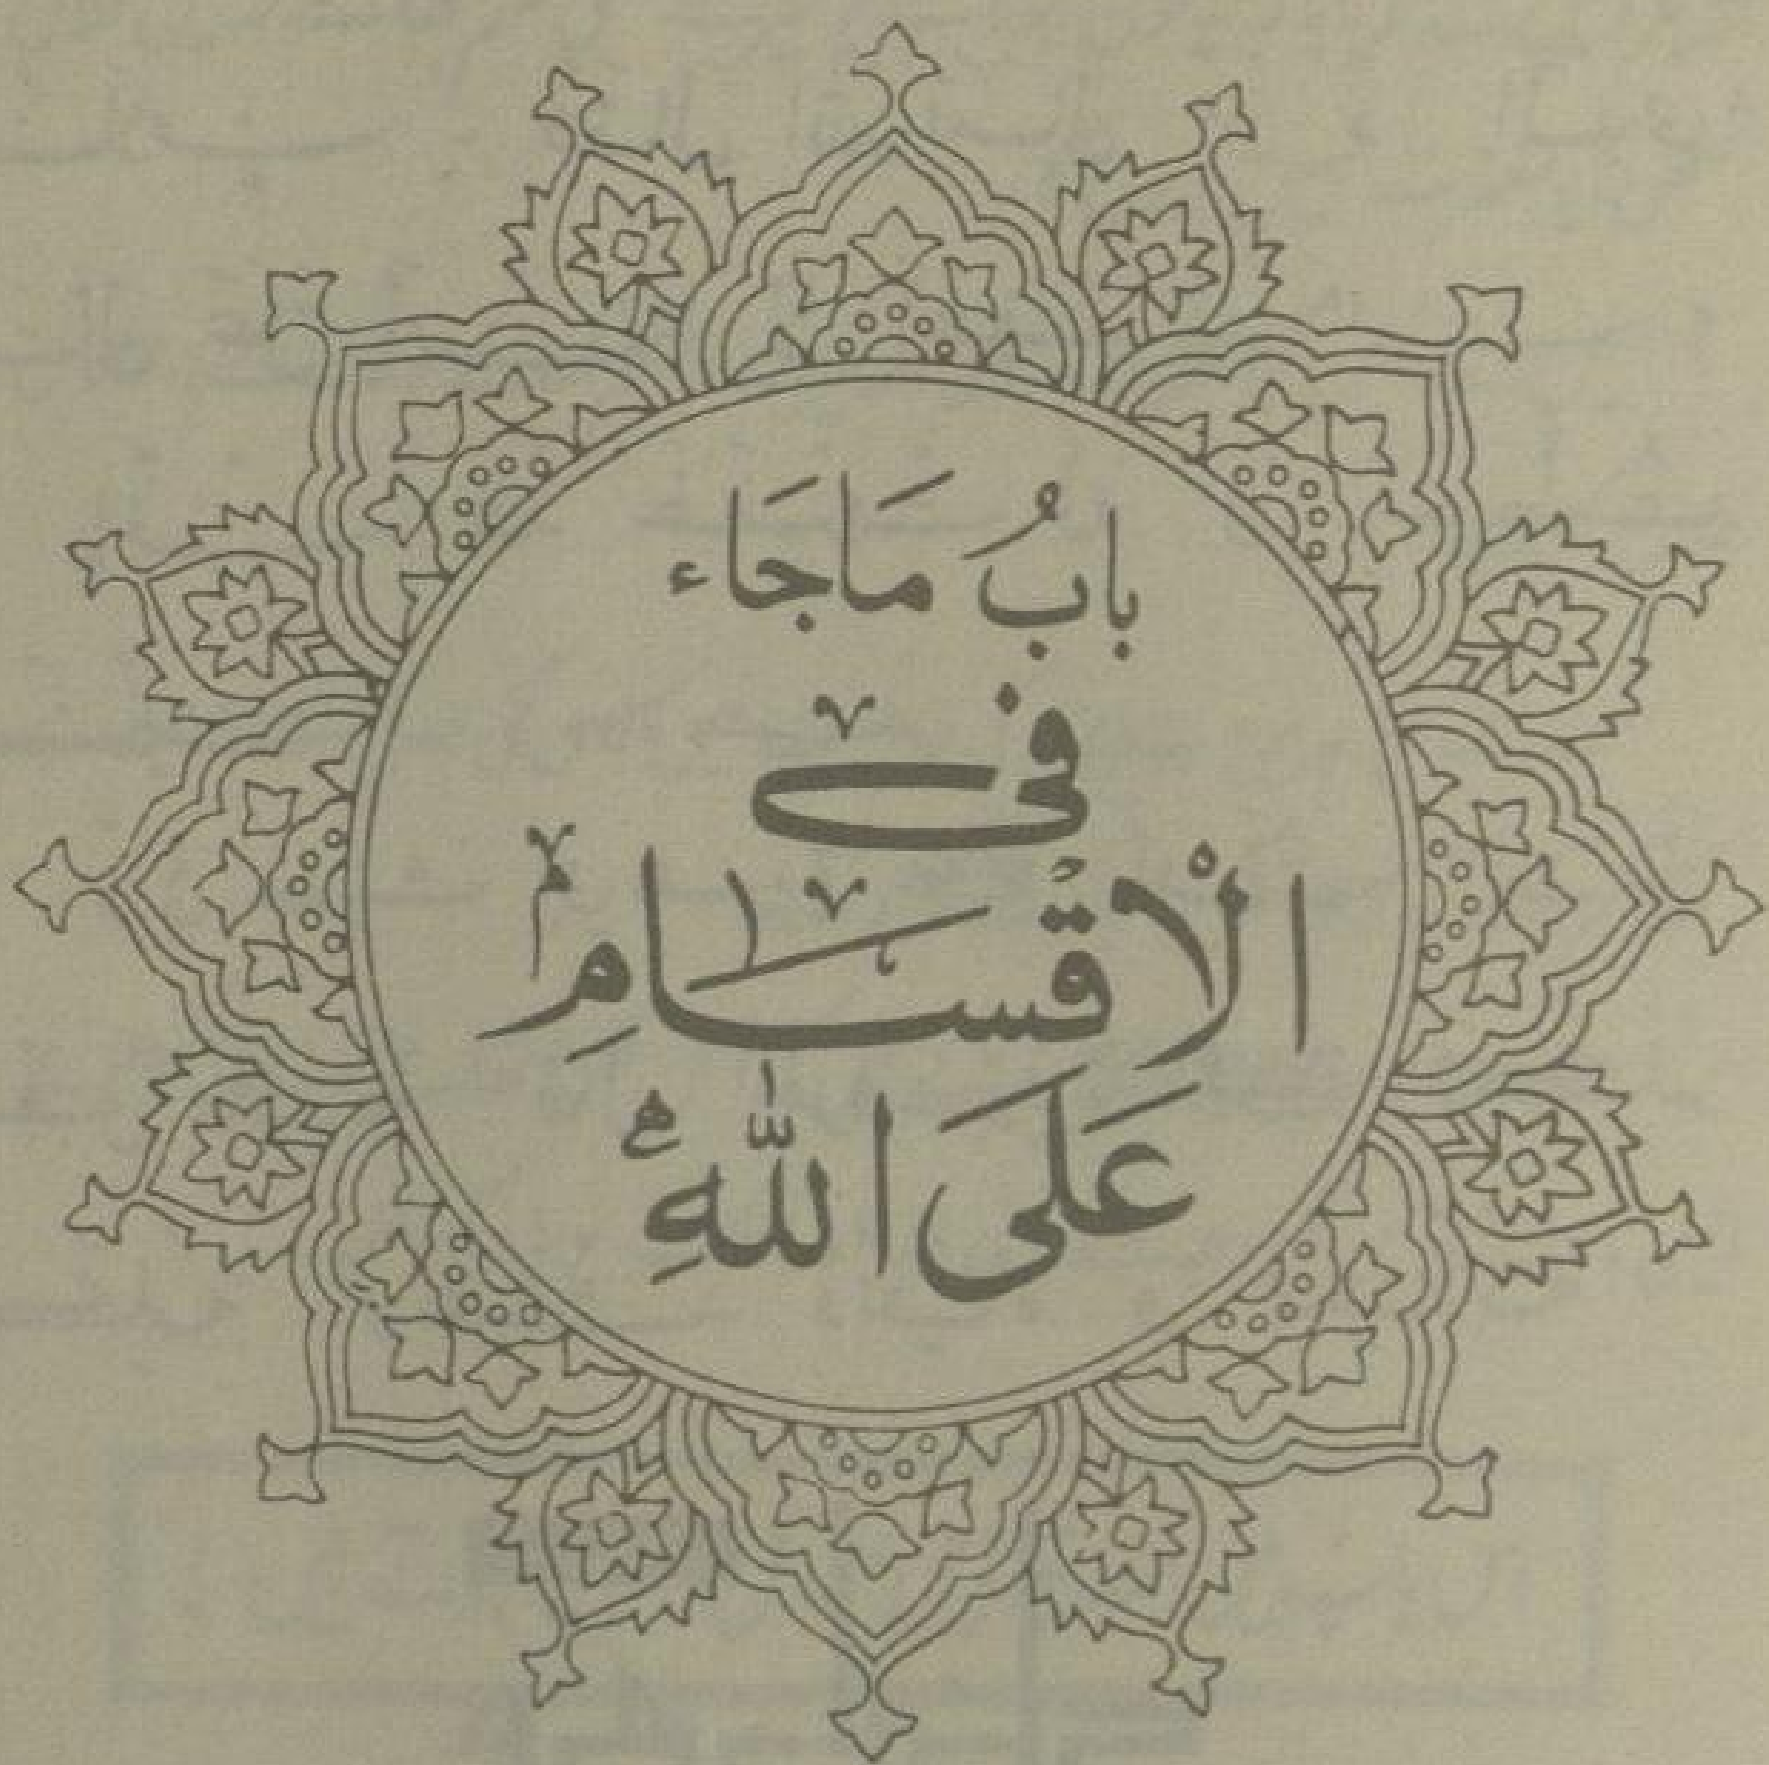 بابُ مَاجَاء
فی
الْاِقْسَامِ
عَلَی اللّٰهِ